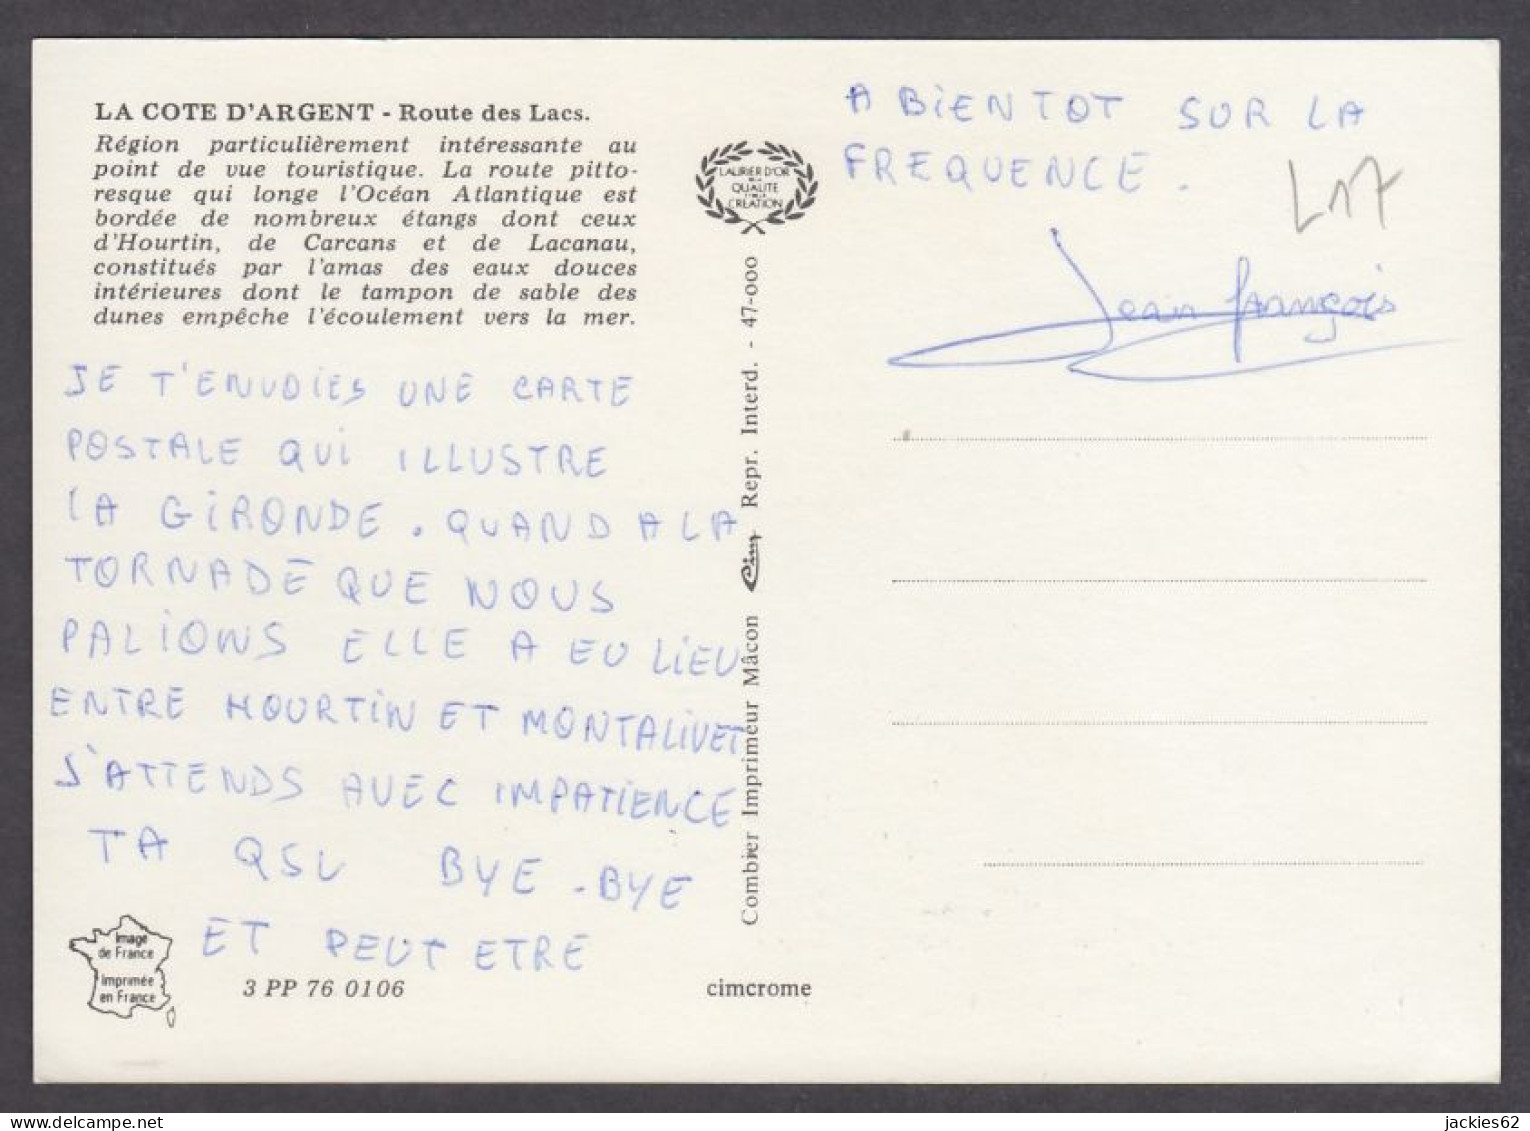 LA COTE D'ARGENT - Route des Lacs.
Région particulièrement intéressante au
point de vue touristique. La route pitto-
resque qui longe l'Océan Atlantique est
bordée de nombreux étangs dont ceux
d'Hourtin, de Carcans et de Lacanau,
constitués par l'amas des eaux douces
intérieures dont le tampon de sable des
dunes empêche l'écoulement vers la mer.
JE T'ENVOIES UNE CARTE
POSTALE QUI ILLUSTRE
LA GIRONDE. QUAND A LA
TORNADE QUE NOUS
PALIONS ELLE A EU LIEU
ENTRE HOURTIN ET MONTALIVET
J'ATTENDS AVEC IMPATIENCE
TA QSL BYE-BYE
ET PEUT ETRE
Image
de France
Imprimée
en France
3 PP 76 0106
cimcrome
LAURIER D'OR
QUALITE
CREATION
Combier Imprimeur Mâcon Cim Repr. Interd. - 47-000
A BIENTOT SUR LA
FREQUENCE.
L17
Jean françois
delcampe.net
jackies62